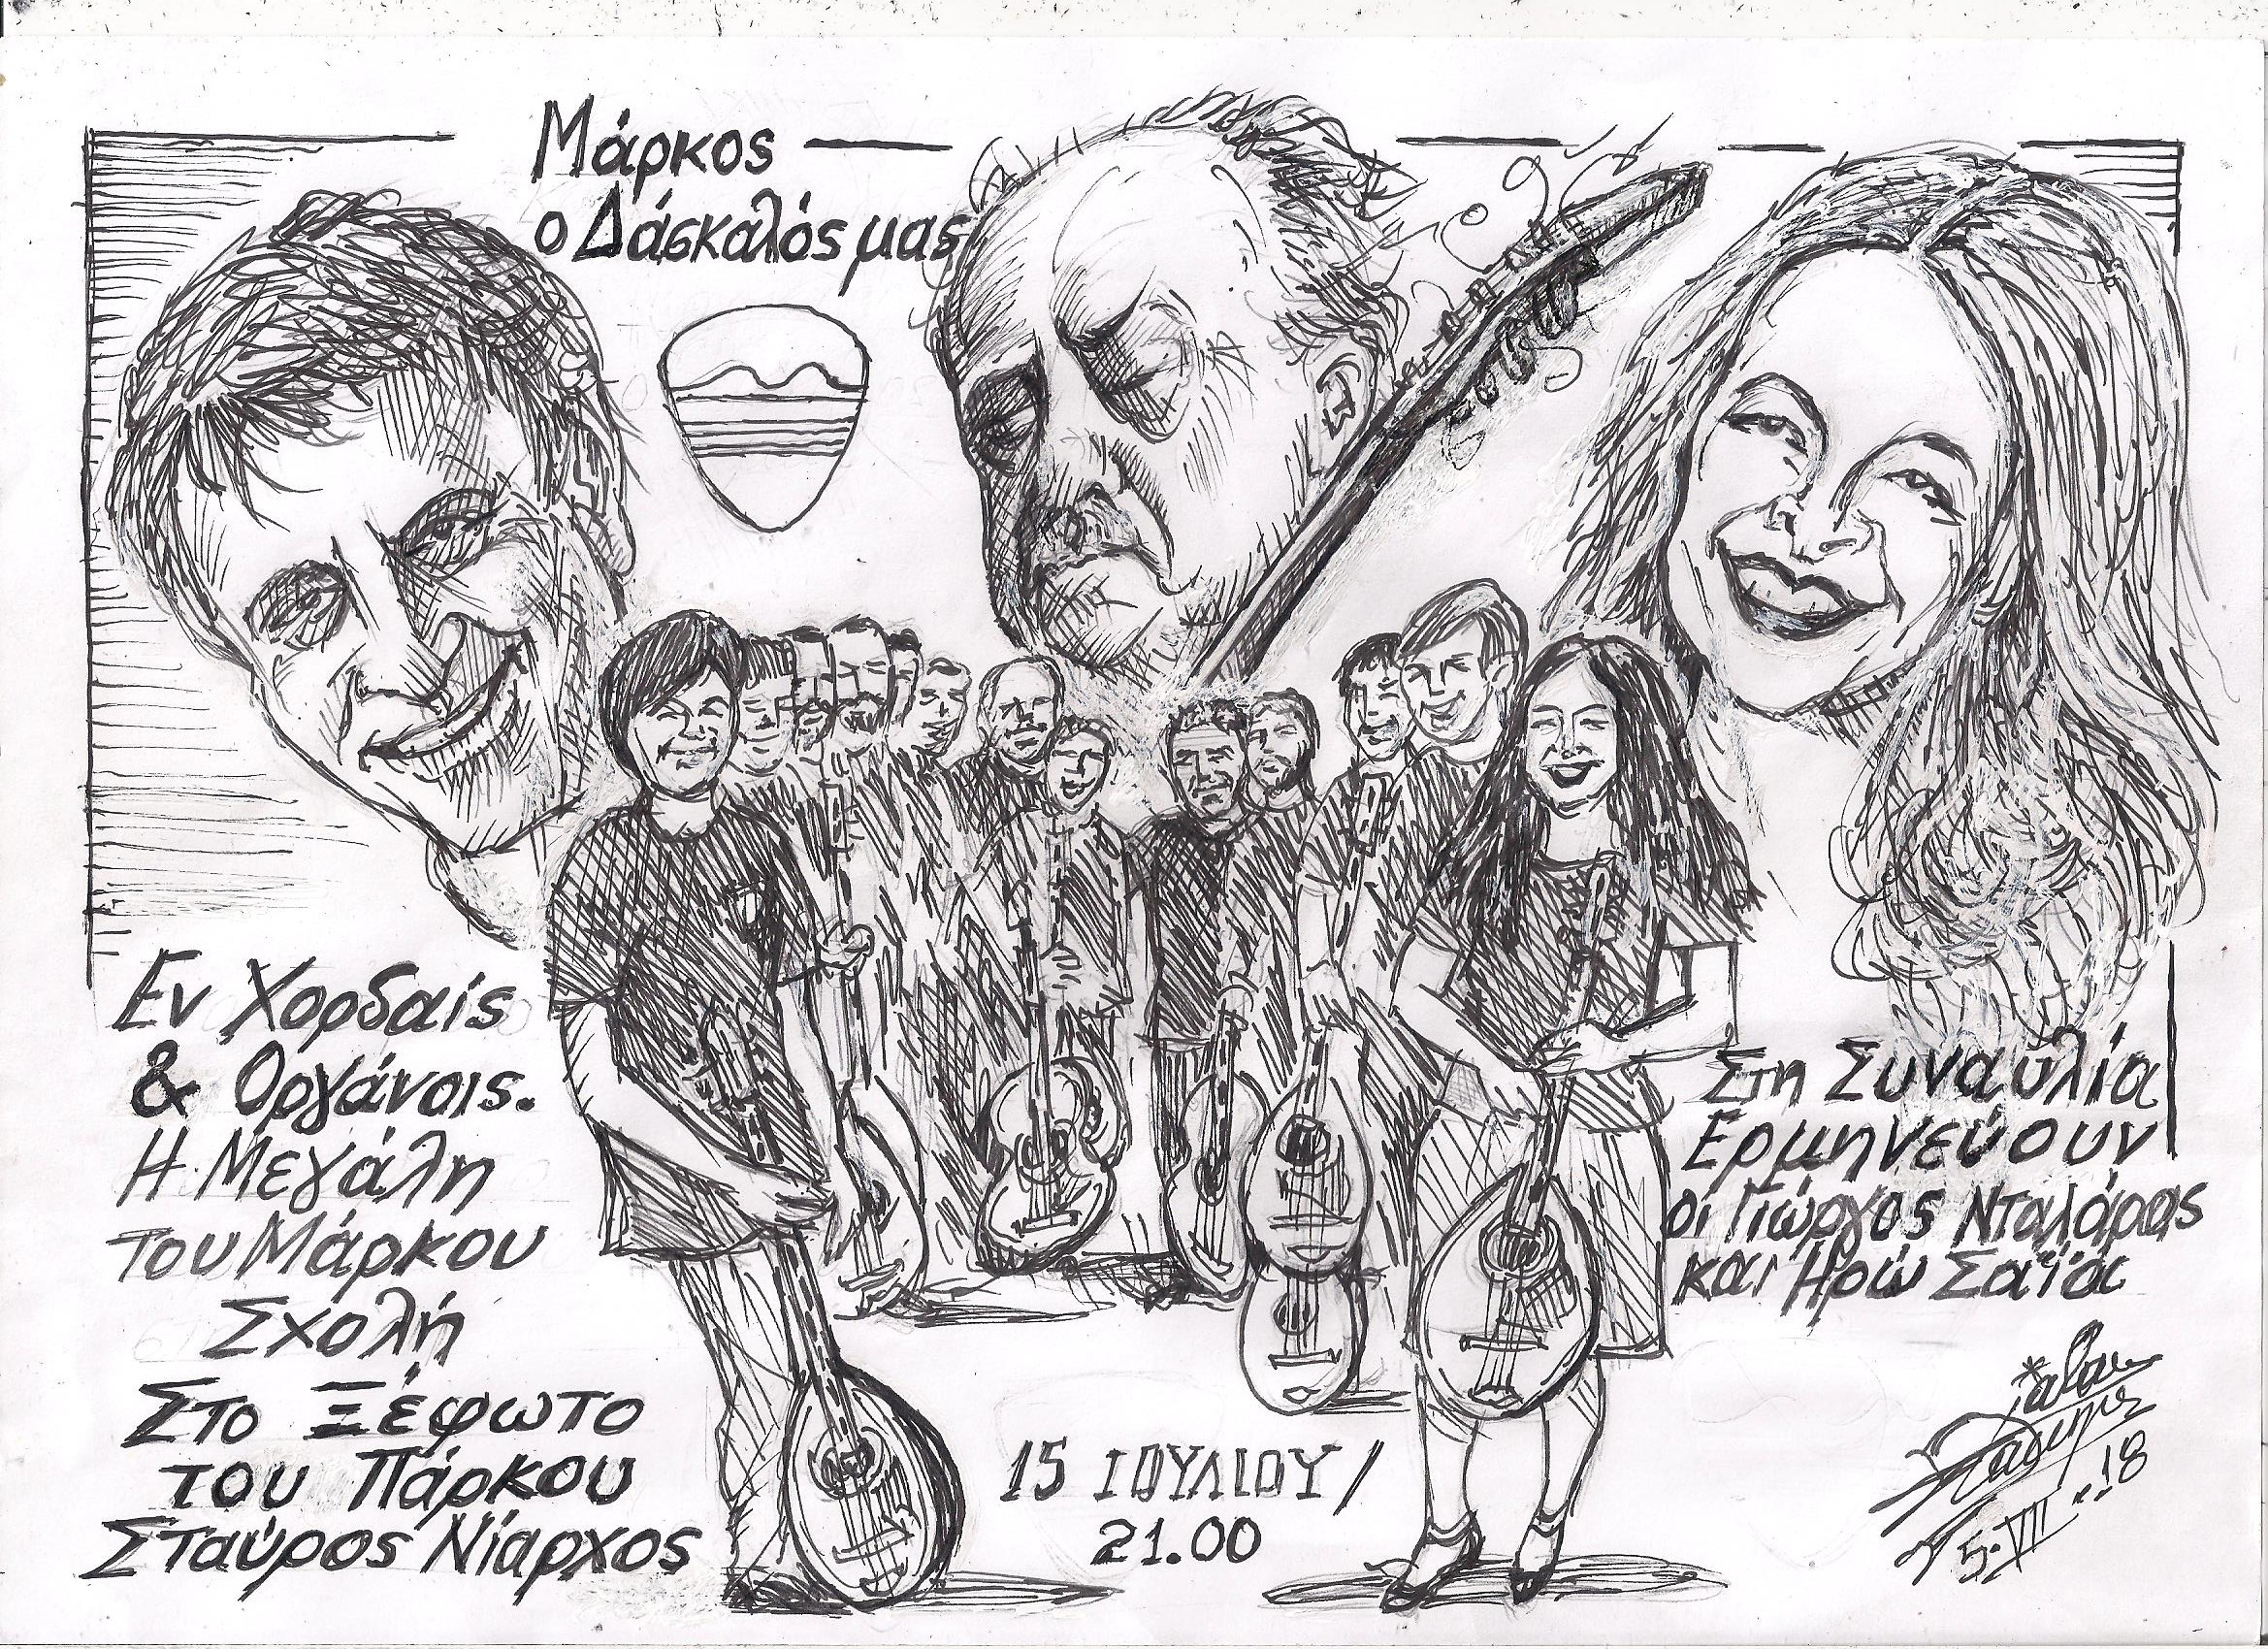 Μάρκος
ο Δάσκαλός μας
Εν Χορδαίς
& Οργάνοις.
Η Μεγάλη
του Μάρκου
Σχολή
Στο Ξέφωτο
του Πάρκου
Σταύρος Νίαρχος
15 ΙΟΥΛΙΟΥ/
21.00
Στη Συναυλία
Ερμηνεύουν
οι Γιώργος Νταλάρας
και Ηρώ Σαϊα
5·VII··18